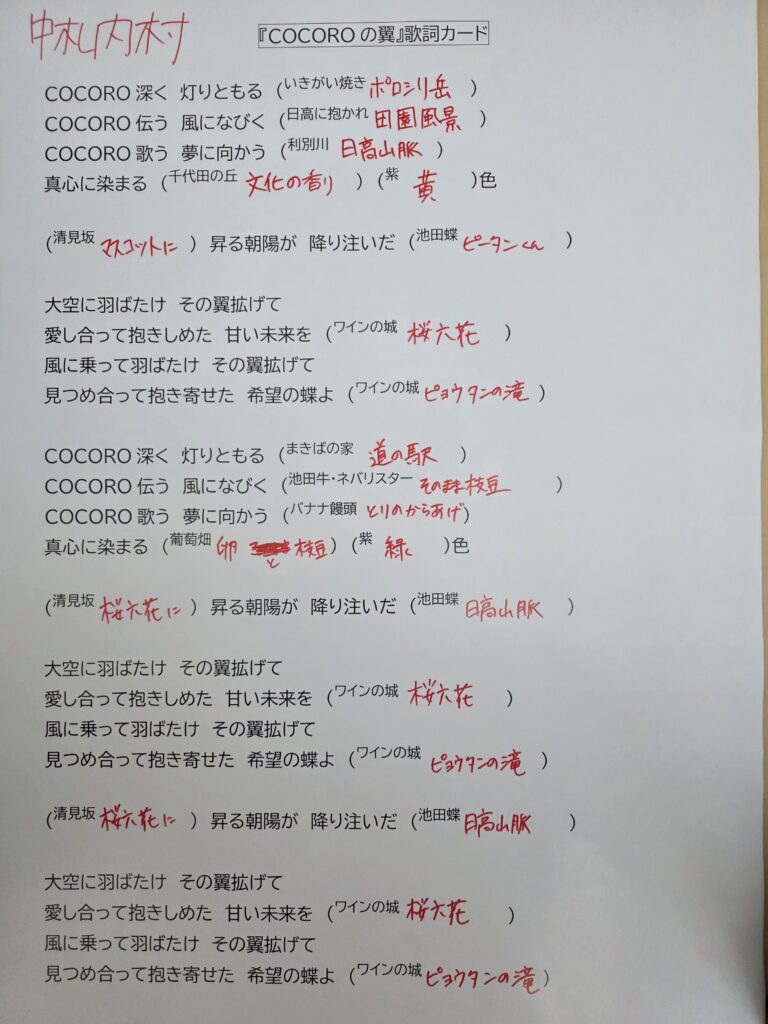 中札内村
『COCOROの翼』歌詞カード
COCORO 深く 灯りともる (いきがい焼き ポロシリ岳 )
COCORO 伝う 風になびく (日高に抱かれ 田園風景 )
COCORO 歌う 夢に向かう (利別川 日高山脈 )
真心に染まる (千代田の丘 文化の香り ) (紫 黄 )色
(清見坂 マスコットに ) 昇る朝陽が 降り注いだ (池田蝶 ピータンくん )
大空に羽ばたけ その翼拡げて
愛し合って抱きしめた 甘い未来を (ワインの城 桜六花 )
風に乗って羽ばたけ その翼拡げて
見つめ合って抱き寄せた 希望の蝶よ (ワインの城 ピョウタンの滝 )
COCORO 深く 灯りともる (まきばの家 道の駅 )
COCORO 伝う 風になびく (池田牛・ネバリスター そのまま枝豆 )
COCORO 歌う 夢に向かう (バナナ饅頭 とりのからあげ)
真心に染まる (葡萄畑 卵 と 枝豆) (紫 緑 )色
(清見坂 桜六花に ) 昇る朝陽が 降り注いだ (池田蝶 日高山脈 )
大空に羽ばたけ その翼拡げて
愛し合って抱きしめた 甘い未来を (ワインの城 桜六花 )
風に乗って羽ばたけ その翼拡げて
見つめ合って抱き寄せた 希望の蝶よ (ワインの城 ピョウタンの滝 )
(清見坂 桜六花に ) 昇る朝陽が 降り注いだ (池田蝶 日高山脈 )
大空に羽ばたけ その翼拡げて
愛し合って抱きしめた 甘い未来を (ワインの城 桜六花 )
風に乗って羽ばたけ その翼拡げて
見つめ合って抱き寄せた 希望の蝶よ (ワインの城 ピョウタンの滝)